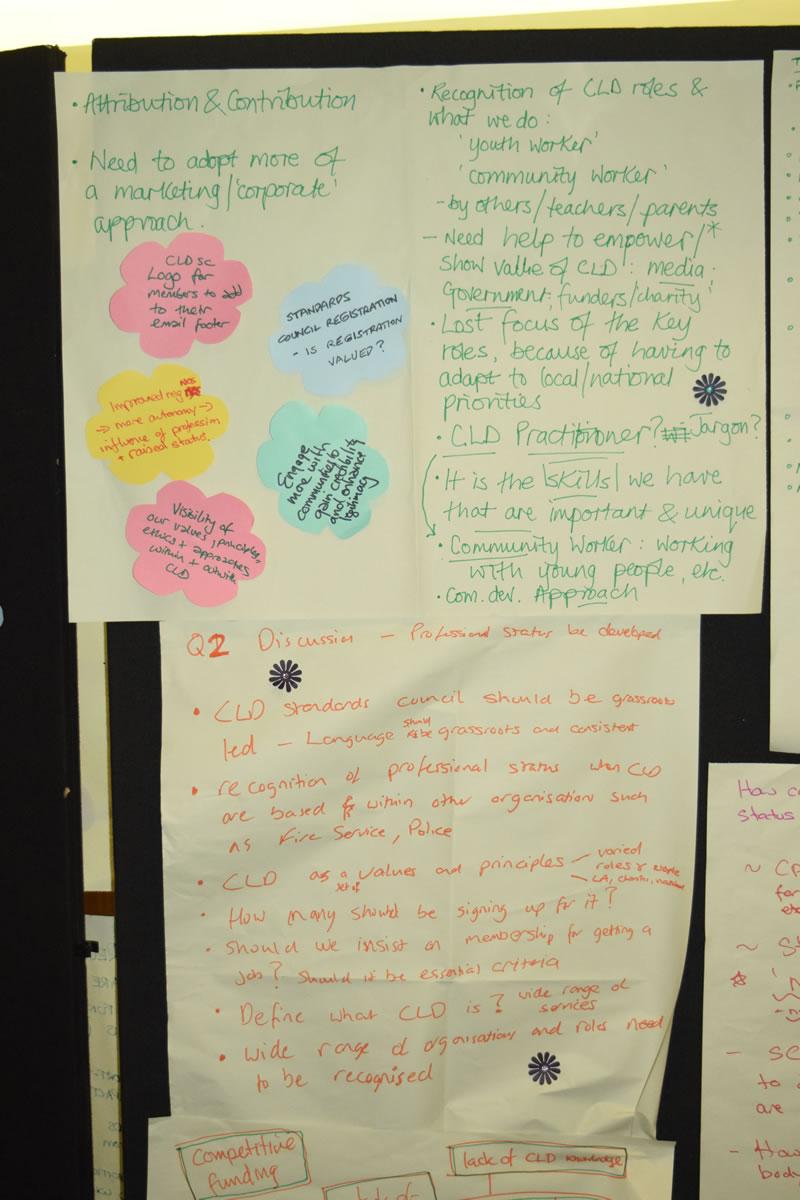 • Attribution & Contribution
• Need to adopt more of
a marketing/'corporate'
approach.
CLD SC
Logo for
members to add
to their
email footer
STANDARDS
COUNCIL REGISTRATION
- IS REGISTRATION
VALUED?
Improved reg
→ more autonomy →
influence of profession
+ raised status.
Engage
more with
communities to
gain credibility
and enhance
legitimacy
Visibility of
our values, principles,
ethics + approaches
within + outwith
CLD
• Recognition of CLD roles &
what we do:
'youth worker'
'community worker'
- by others/teachers/parents
- Need help to empower/*
Show value of CLD: media.
Government, funders/charity'
• Lost focus of the key
roles, because of having to
adapt to local/national
priorities
• CLD Practitioner? Jargon?
• It is the |skills| we have
that are important & unique
• Community Worker: working
with young people, etc.
• Com. dev. Approach
Q2 Discussion - Professional status be developed
• CLD standards council should be grassroots
led - Language should be grassroots and consistent
• recognition of professional status when CLD
are based within other organisations such
as Fire Service, Police
• CLD as a set of values and principles - varied
roles
• How many should be signing up for it?
• Should we insist on membership for getting a
job? Should it be essential criteria
• Define what CLD is? wide range of
services
• Wide range of organisations and roles need
to be recognised
Competitive
funding
lack of CLD knowledge
lack of
How c
status
~ CP
for
etc
~ St
- sc
to
are
- How
body